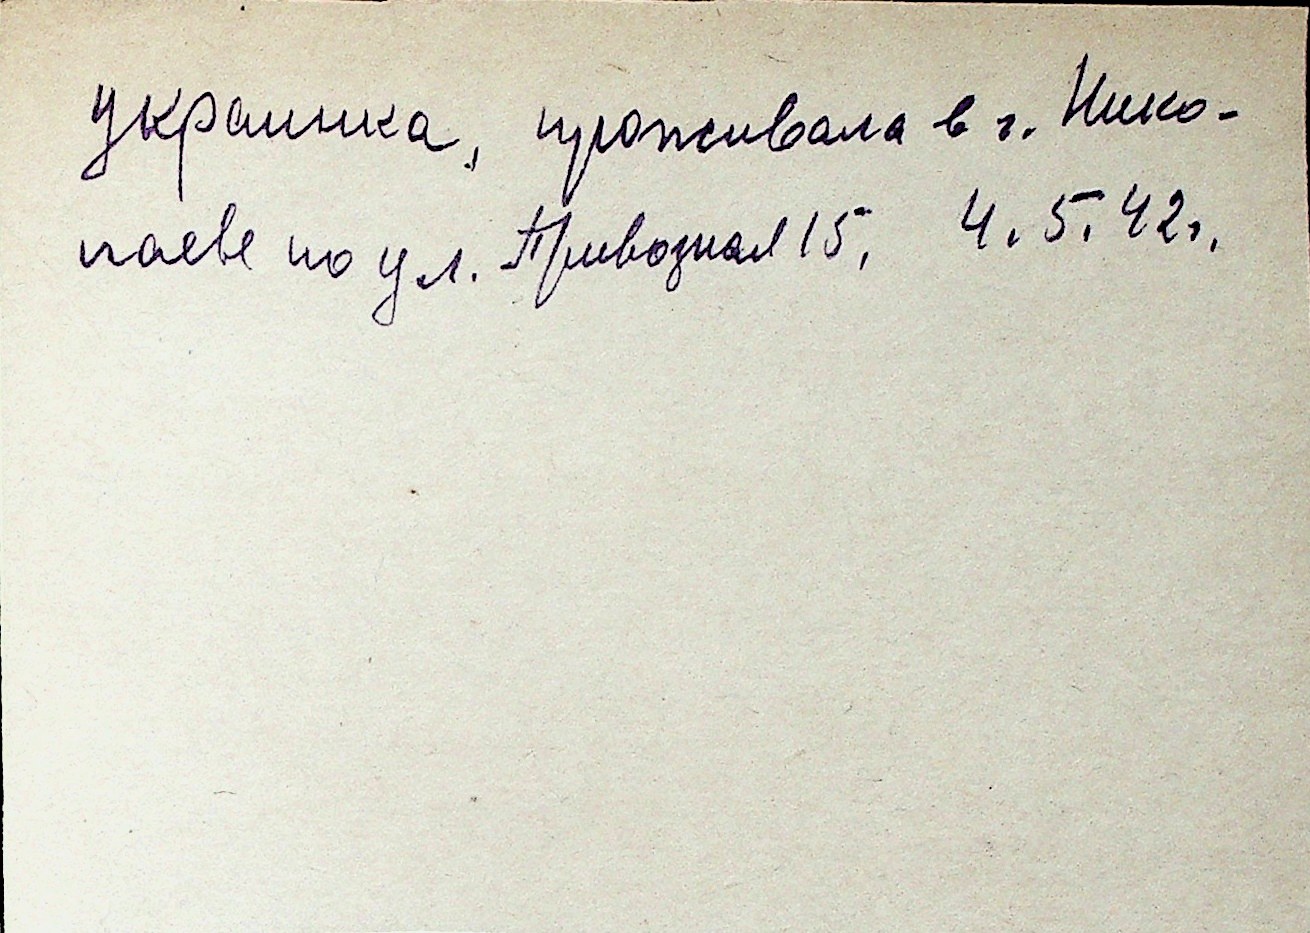 украинка, проживала в г. Нико-
лаеве по ул. Привозная 15, 4.5.42г.